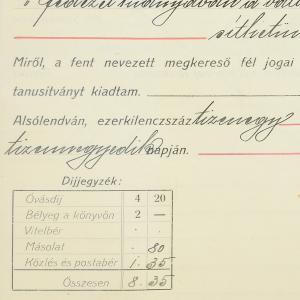 fedezet hiányában a
síthetin
Miről, a fent nevezett megkereső fél jogai
tanusítványt kiadtam.
Alsólendván, ezerkilenczszáz tizenegy
tizennegyedik napján.
Díjjegyzék:
Óvásdíj 4 20
Bélyeg a könyvön 2 —
Vitelbér . .
Másolat . 80
Közlés és postabér 1. 35
Összesen 8. 35